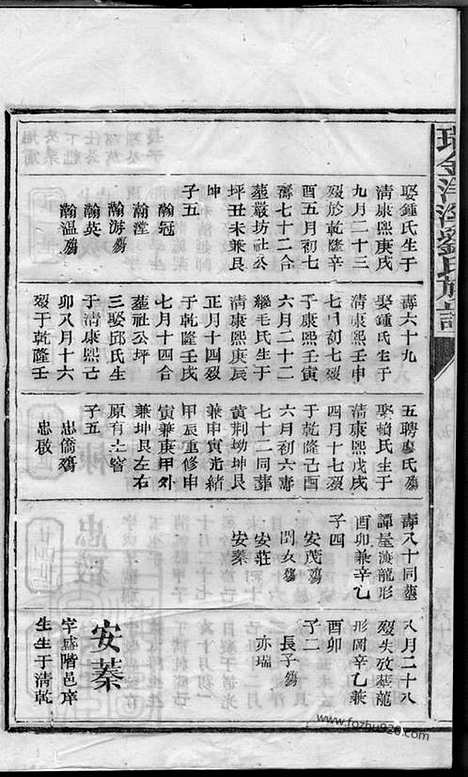 瑞金洋溪劉氏族譜
娶鍾氏生于
清康熙庚戌
九月二十三
歿於乾隆辛
酉五月初七
壽七十二合
塟嚴坊社公
坪丑未兼艮
坤
子五
瀚冠
瀚瀅
瀚游殤
瀚英
瀚溫殤
壽六十九
娶鍾氏生于
清康熙壬申
七月初七歿
于康熙壬寅
六月二十二
繼毛氏生于
清康熙庚辰
正月十四歿
于乾隆壬戌
七月十四合
塟社公坪
三娶邱氏生
于清康熙己
卯八月十六
歿于乾隆壬
五聘廖氏殤
娶賴氏生于
清康熙戊戌
四月十七歿
于乾隆己酉
六月初六壽
七十二同葬
黃荆坳坤艮
兼申寅光緒
甲辰重修申
寅兼庚甲外
兼坤艮左右
原有土窨
子五
忠僑殤
忠啟
壽八十同塟
譚屋漈龍形
酉卯兼辛乙
子四
安茂殤
閏女殤
安莊
安蓁
八月二十八
歿失攷葬龍
形岡辛乙兼
酉卯
子二
長子殤
亦瑞
安蓁
字盛階邑庠
生生于清乾
www.fozhu920.com